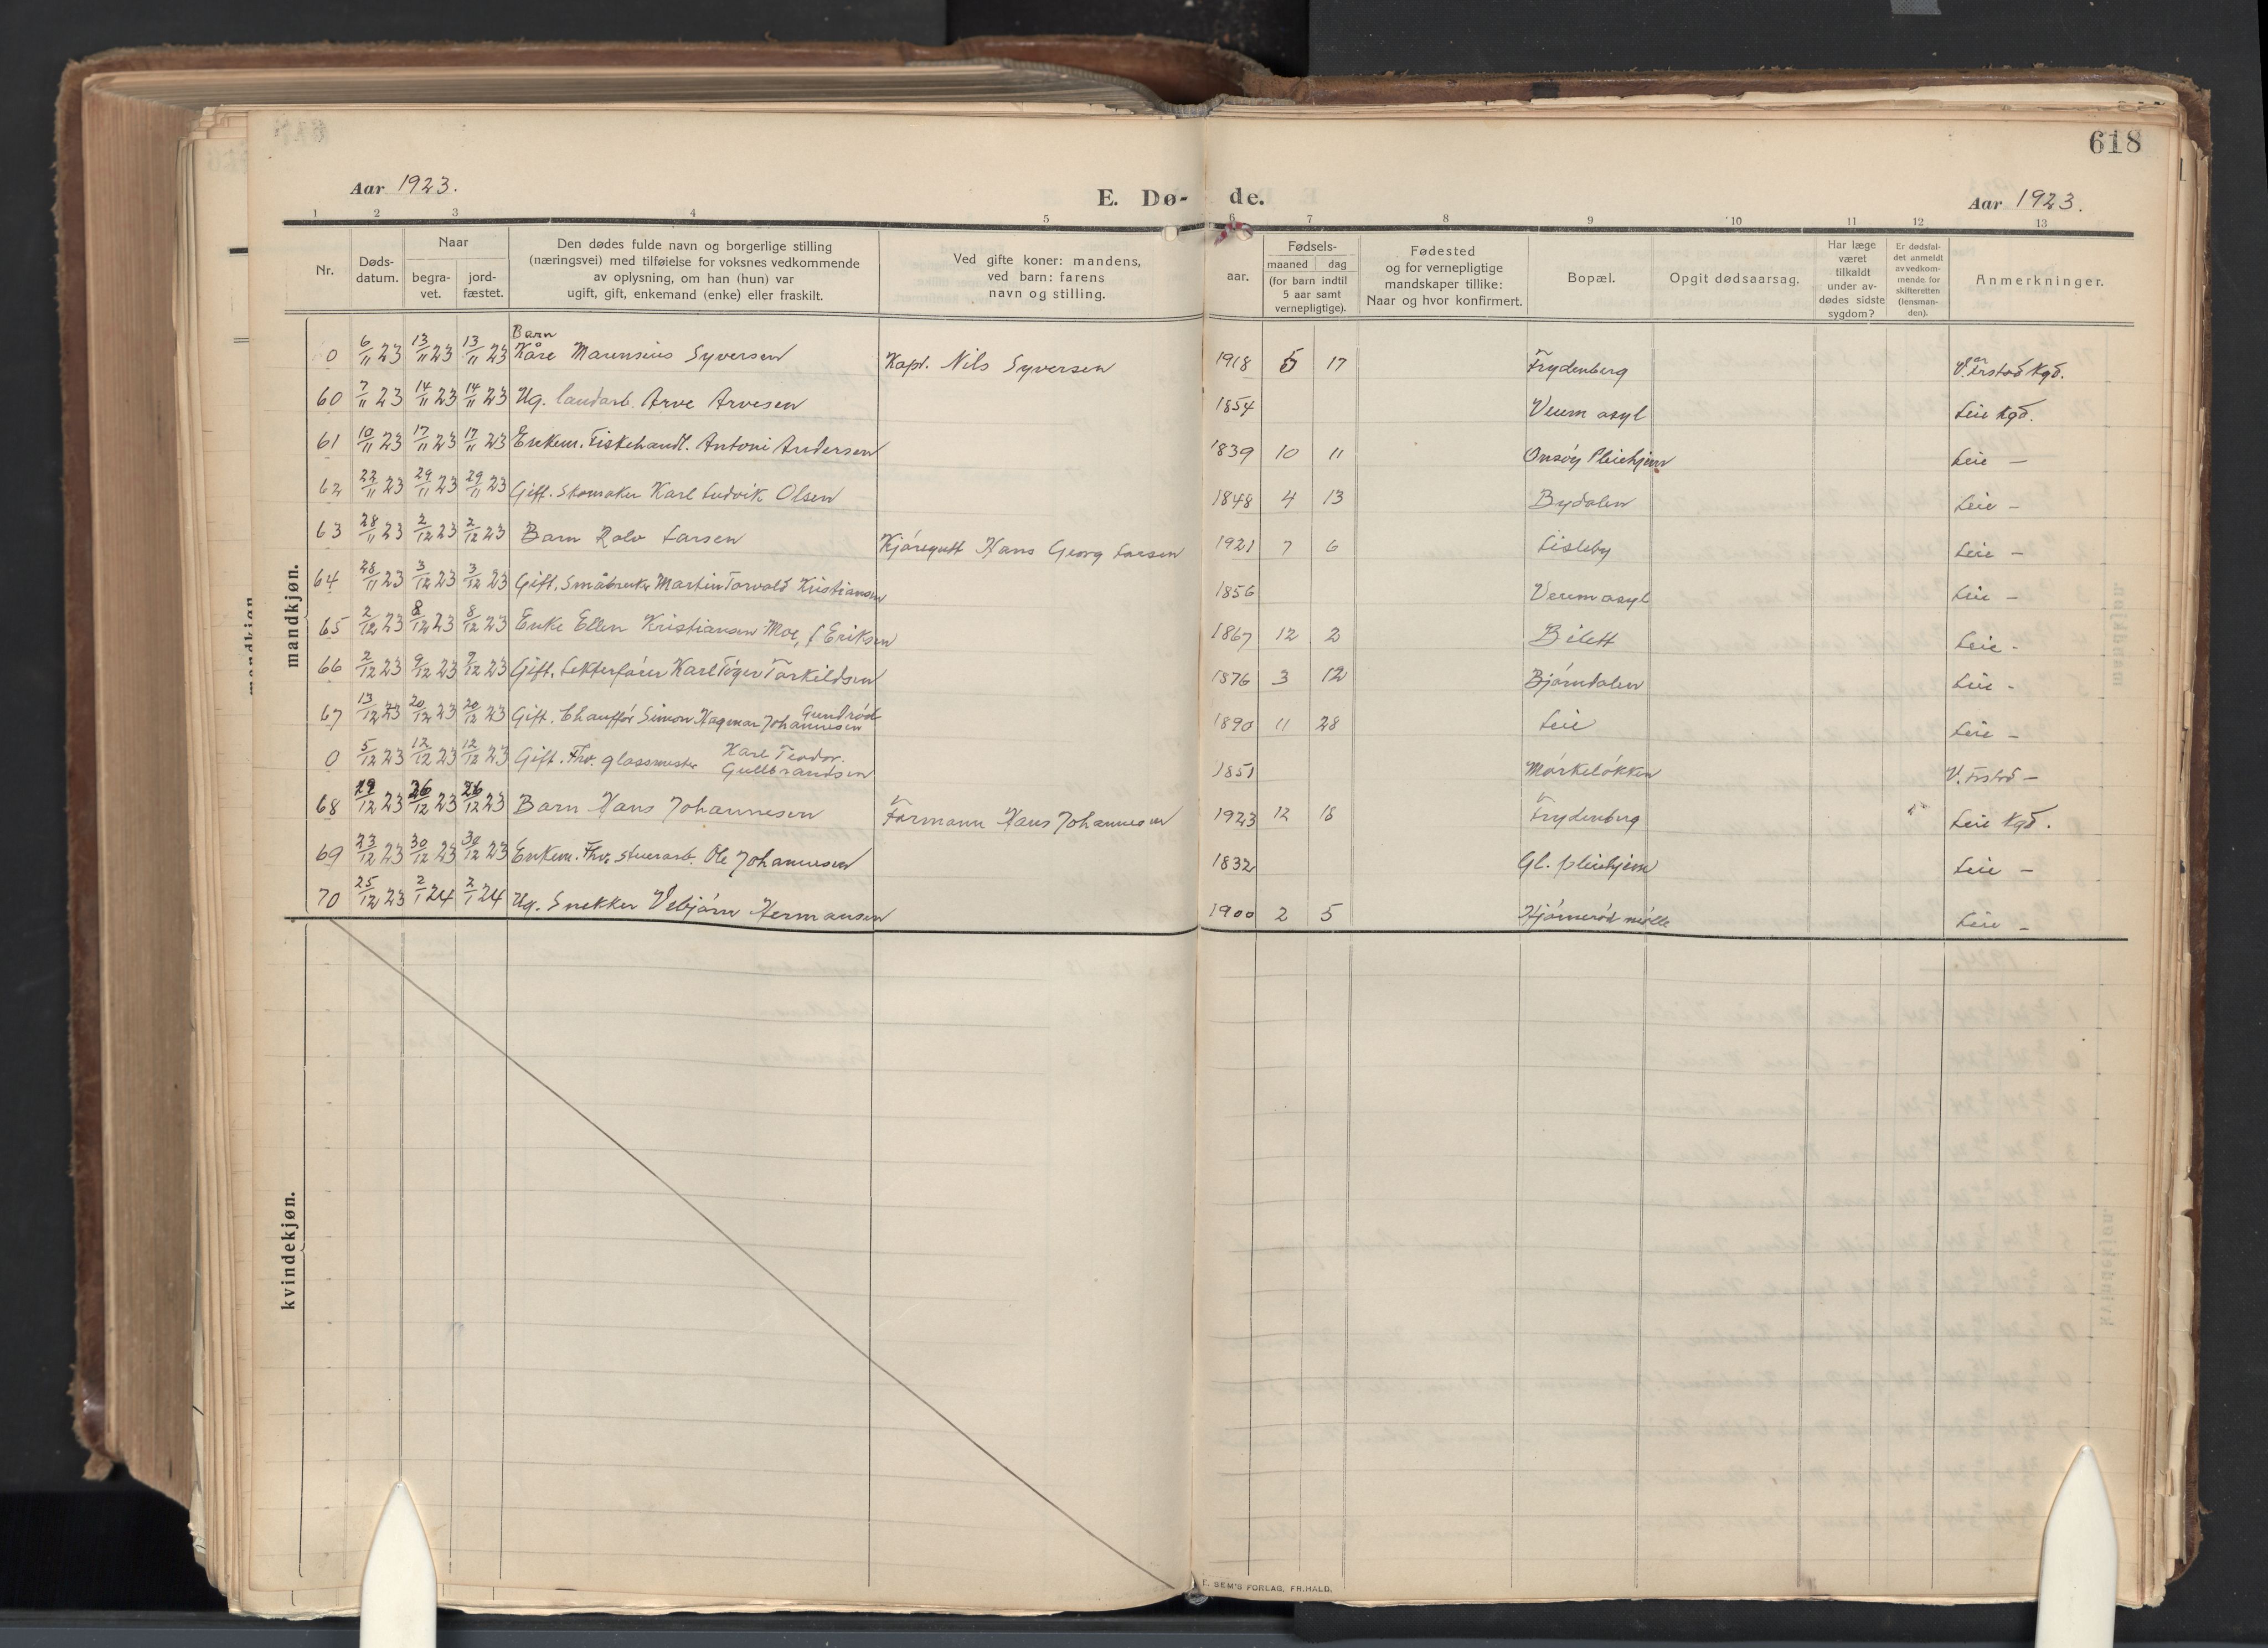 618
Aar 1923.
E. Dø- de.
Aar 1923.
1 2 3 4 5 6 7 8 9 10 11 12 13
Nr.
Døds-
datum.
Naar
begra-
vet.
jord-
fæstet.
Den dødes fulde navn og borgerlige stilling
(næringsvei) med tilføielse for voksnes vedkommende
av oplysning, om han (hun) var
ugift, gift, enkemand (enke) eller fraskilt.
Ved gifte koner: mandens,
ved barn: farens
navn og stilling.
aar.
Fødsels-
maaned dag
(for barn indtil
5 aar samt
vernepligtige).
Fødested
og for vernepligtige
mandskaper tillike:
Naar og hvor konfirmert.
Bopæl.
Opgit dødsaarsag.
Har læge
været
tilkaldt
under av-
dødes sidste
sygdom?
Er dødsfal-
det anmeldt
av vedkom-
mende for
skifteretten
(lensman-
den).
Anmerkninger.
mandkjøn.
Barn
0 6/11 23 13/11 23 13/11 23 Kåre Marensius Syversen Kapt. Nils Syversen 1918 5 17 Frydenberg V. Frstad Kgd.
60 7/11 23 14/11 23 14/11 23 Ug. landarb. Arve Arvesen 1854 Veum asyl Leie Kgd.
61 10/11 23 17/11 23 17/11 23 Enkem. Fiskehandl. Antoni Andersen 1839 10 11 Onsøy Pleiehjem Leie —
62 22/11 23 29/11 23 29/11 23 Gift. Skomaker Karl Ludvik Olsen 1848 4 13 Bydalen Leie —
63 28/11 23 2/12 23 2/12 23 Barn Rolv Larsen Kjøregutt Hans Georg Larsen 1921 7 6 Lisleby Leie —
64 28/11 23 3/12 23 3/12 23 Gift. Småbruker Martin Torvald Kristiansen 1856 Veum asyl Leie —
65 2/12 23 8/12 23 8/12 23 Enke Ellen Kristiansen Moe, f Eriksen 1867 12 2 Bilett Leie -
66 2/12 23 9/12 23 9/12 23 Gift. Lekterfører Karl Töger Torkildsen 1876 3 12 Bjørndalen Leie -
67 13/12 23 20/12 23 20/12 23 Gift. Chauffør Simon Hagman Johannesen Gundrød 1890 11 28 Leie Leie —
0 5/12 23 12/12 23 12/12 23 Gift. Fhv. glassmester Karl Teodor.
Gulbrandsen 1851 Mørkeløkken V. Frstd —
68 19/12 23 26/12 23 26/12 23 Barn Hans Johannesen Formann Hans Johannesen 1923 12 18 Frydenberg Leie Kgd.
69 23/12 23 30/12 23 30/12 23 Enkem. Fhv. stuerarb. Ole Johannesen 1832 Gl. pleiehjem Leie —
70 25/12 23 2/1 24 2/1 24 Ug. Snekker Vebjørn Hermansen 1900 2 5 Hjørnerød mølle Leie —
kvindekjøn.
E. SEM'S FORLAG, FR.HALD.